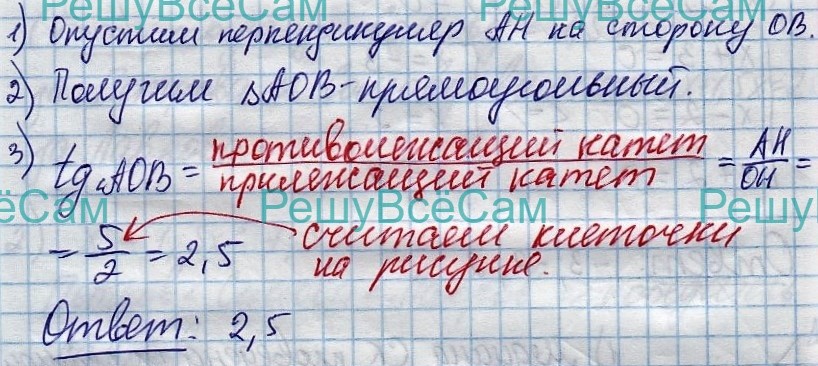 РешуВсёСам РешуВсёСам
1) Опустим перпендикуляр AH на сторону OB.
2) Получим ΔAOB - прямоугольный.
3) tg AOB = противолежащий катет / прилежащий катет = AH / OH =
РешуВсёСам РешуВсёСам РешуВсёСам
= 5/2 = 2,5 считаем клеточки
на рисунке.
Ответ: 2,5